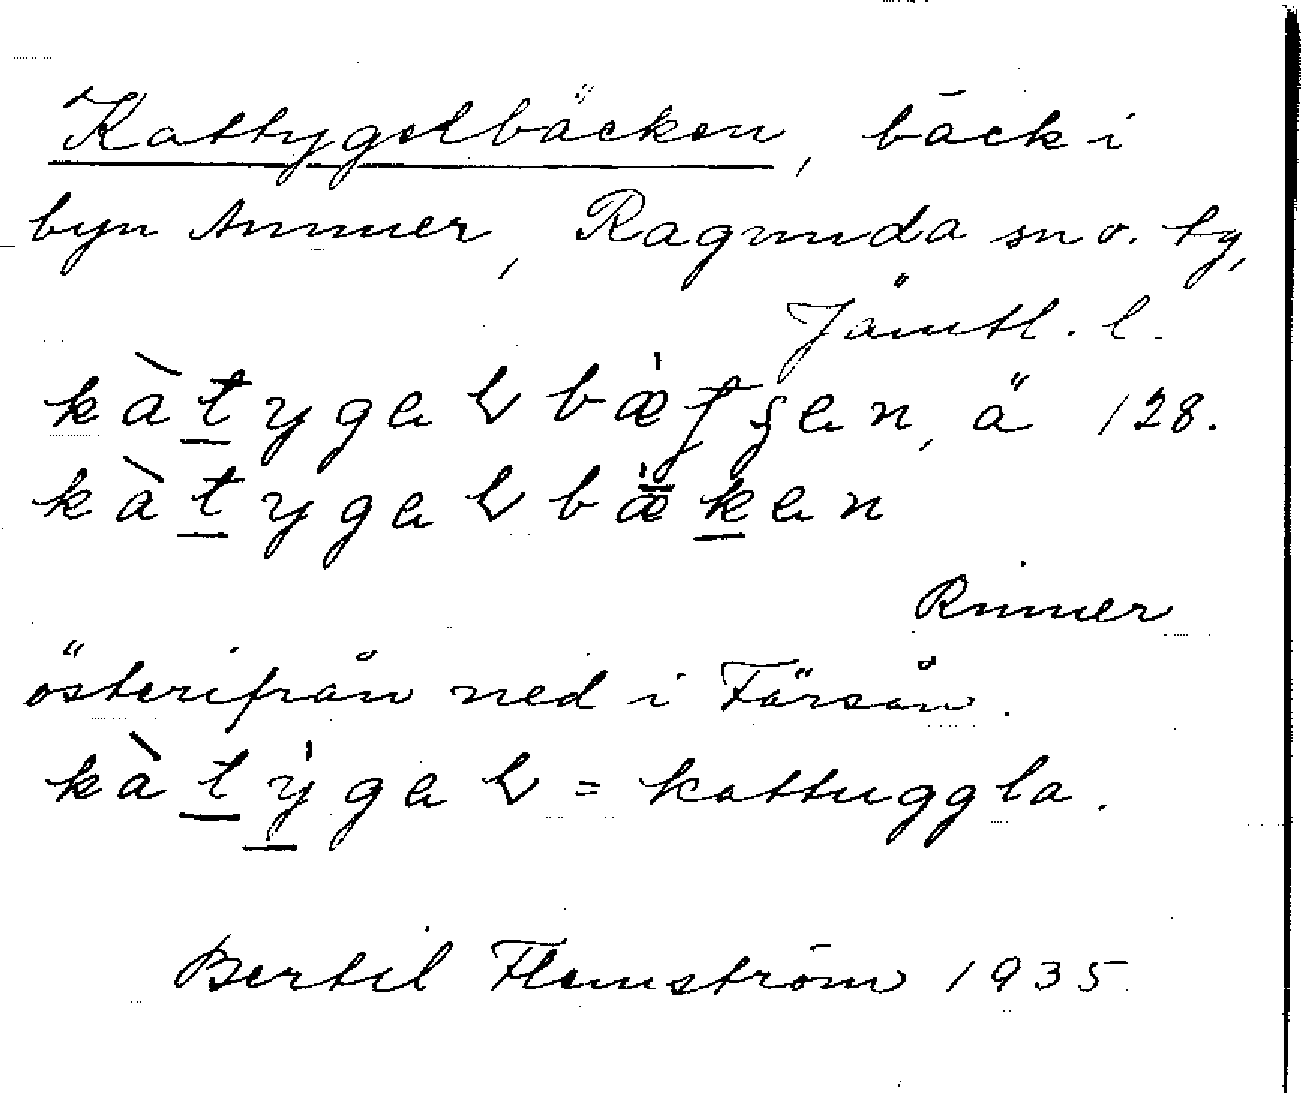 Kattygelbäcken, bäck i
byn Ammer, Ragunda sn o. tg,
Jämtl. l.
kàtygalbæ̍tʂan, ä 128.
kàtygalbæ̍kan
Rinner
österifrån ned i Färsån.
kàty̍gal = kattuggla.
Bertil Flemström 1935.